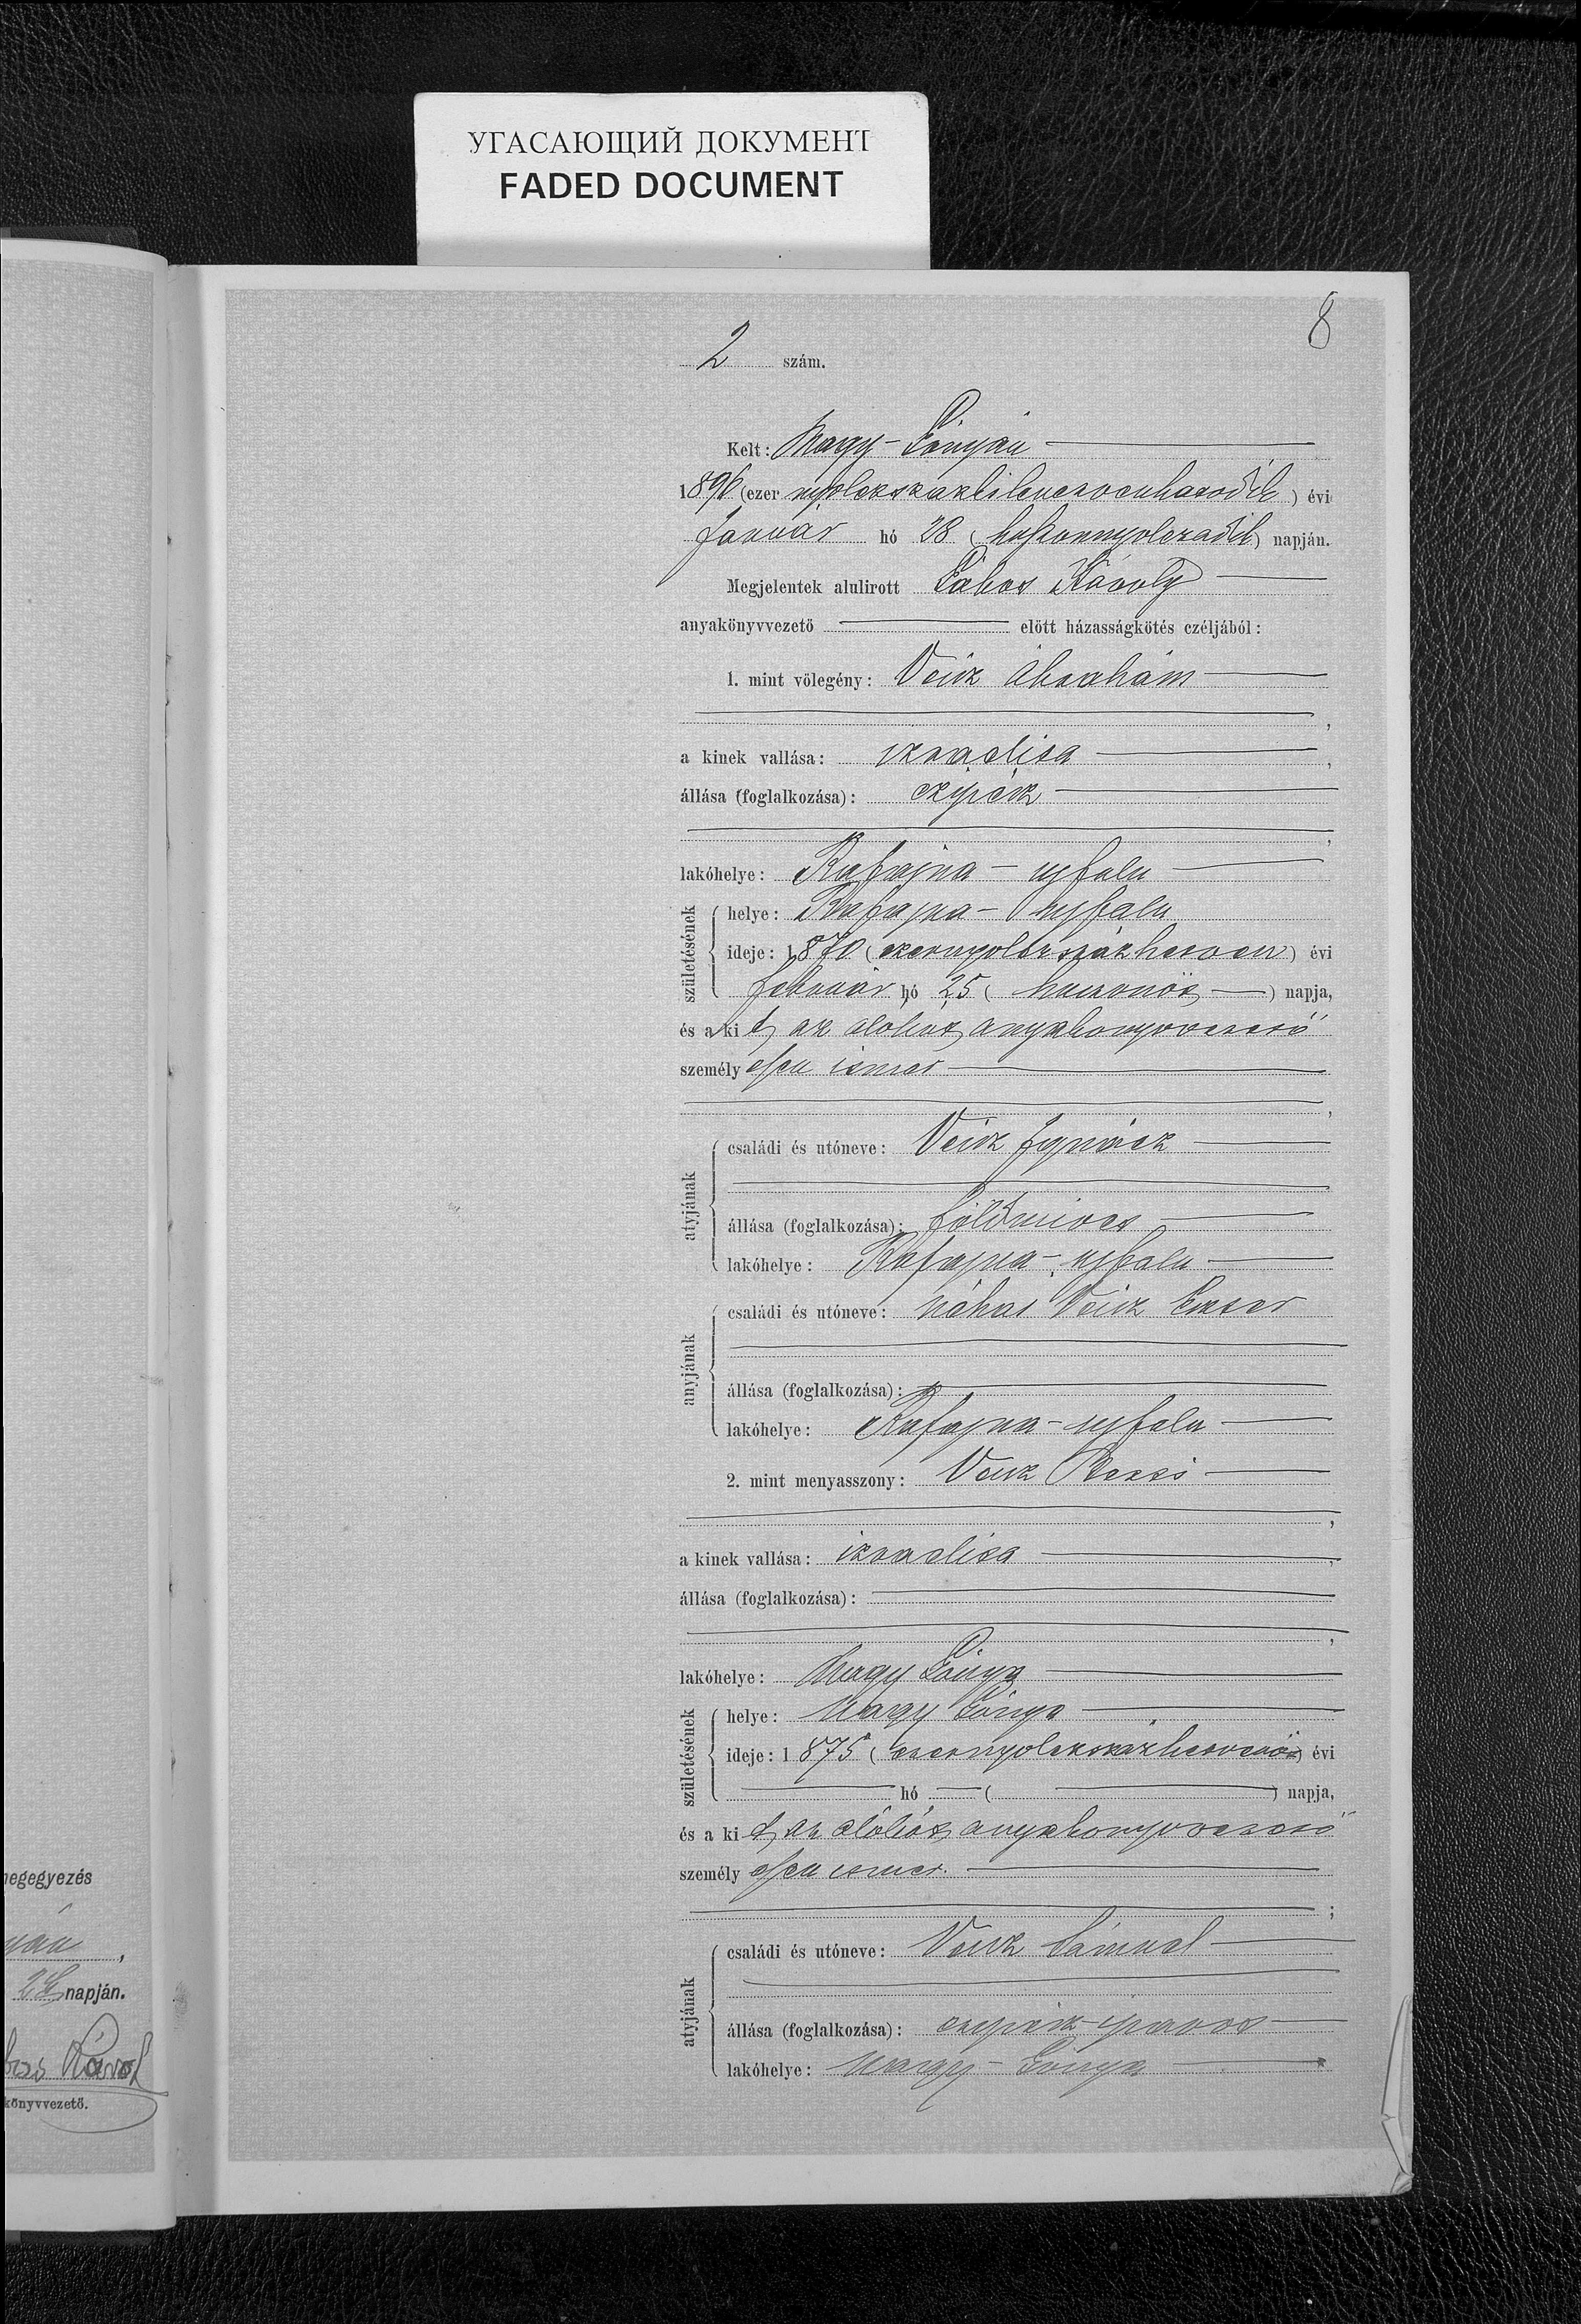 УГАСАЮЩИЙ ДОКУМЕНТ
FADED DOCUMENT
8
2 szám.
Kelt: Nagy-Lónyán
1896 (ezer nyolczszázkilenczvenhatodik) évi
Január hó 28 (huszonnyolczadik) napján.
Megjelentek alulirott Károly
anyakönyvvezető előtt házasságkötés czéljából:
1. mint vőlegény: Veisz Ábrahám
,
a kinek vallása: izraelita ,
állása (foglalkozása): czipész
,
lakóhelye: Rafajna-ujfalu
születésének
helye: Rafajna-ujfalu
ideje: 1870 (ezernyolczszázhetven) évi
február hó 25 (huszonöt) napja,
és a kit az alólirt anyakönyvvezető
személyesen ismer
,
atyjának
családi és utóneve: Veisz Ignácz
állása (foglalkozása): földmives
lakóhelye: Rafajna-ujfalu
anyjának
családi és utóneve: néhai Veisz Eszter
állása (foglalkozása):
lakóhelye: Rafajna-ujfalu
2. mint menyasszony: Veisz Rezsi
,
a kinek vallása: izraelita ,
állása (foglalkozása):
,
lakóhelye: Nagy Lónya
születésének
helye: Nagy Lónya
ideje: 1875 (ezernyolczszázhetvenöt) évi
hó ( ) napja,
és a kit az alólirt anyakönyvvezető
személyesen ismer.
;
atyjának
családi és utóneve: Veisz Sámuel
állása (foglalkozása): czipész iparos
lakóhelye: Nagy-Lónya
negegyezés
,
napján.
Károly
könyvvezető.